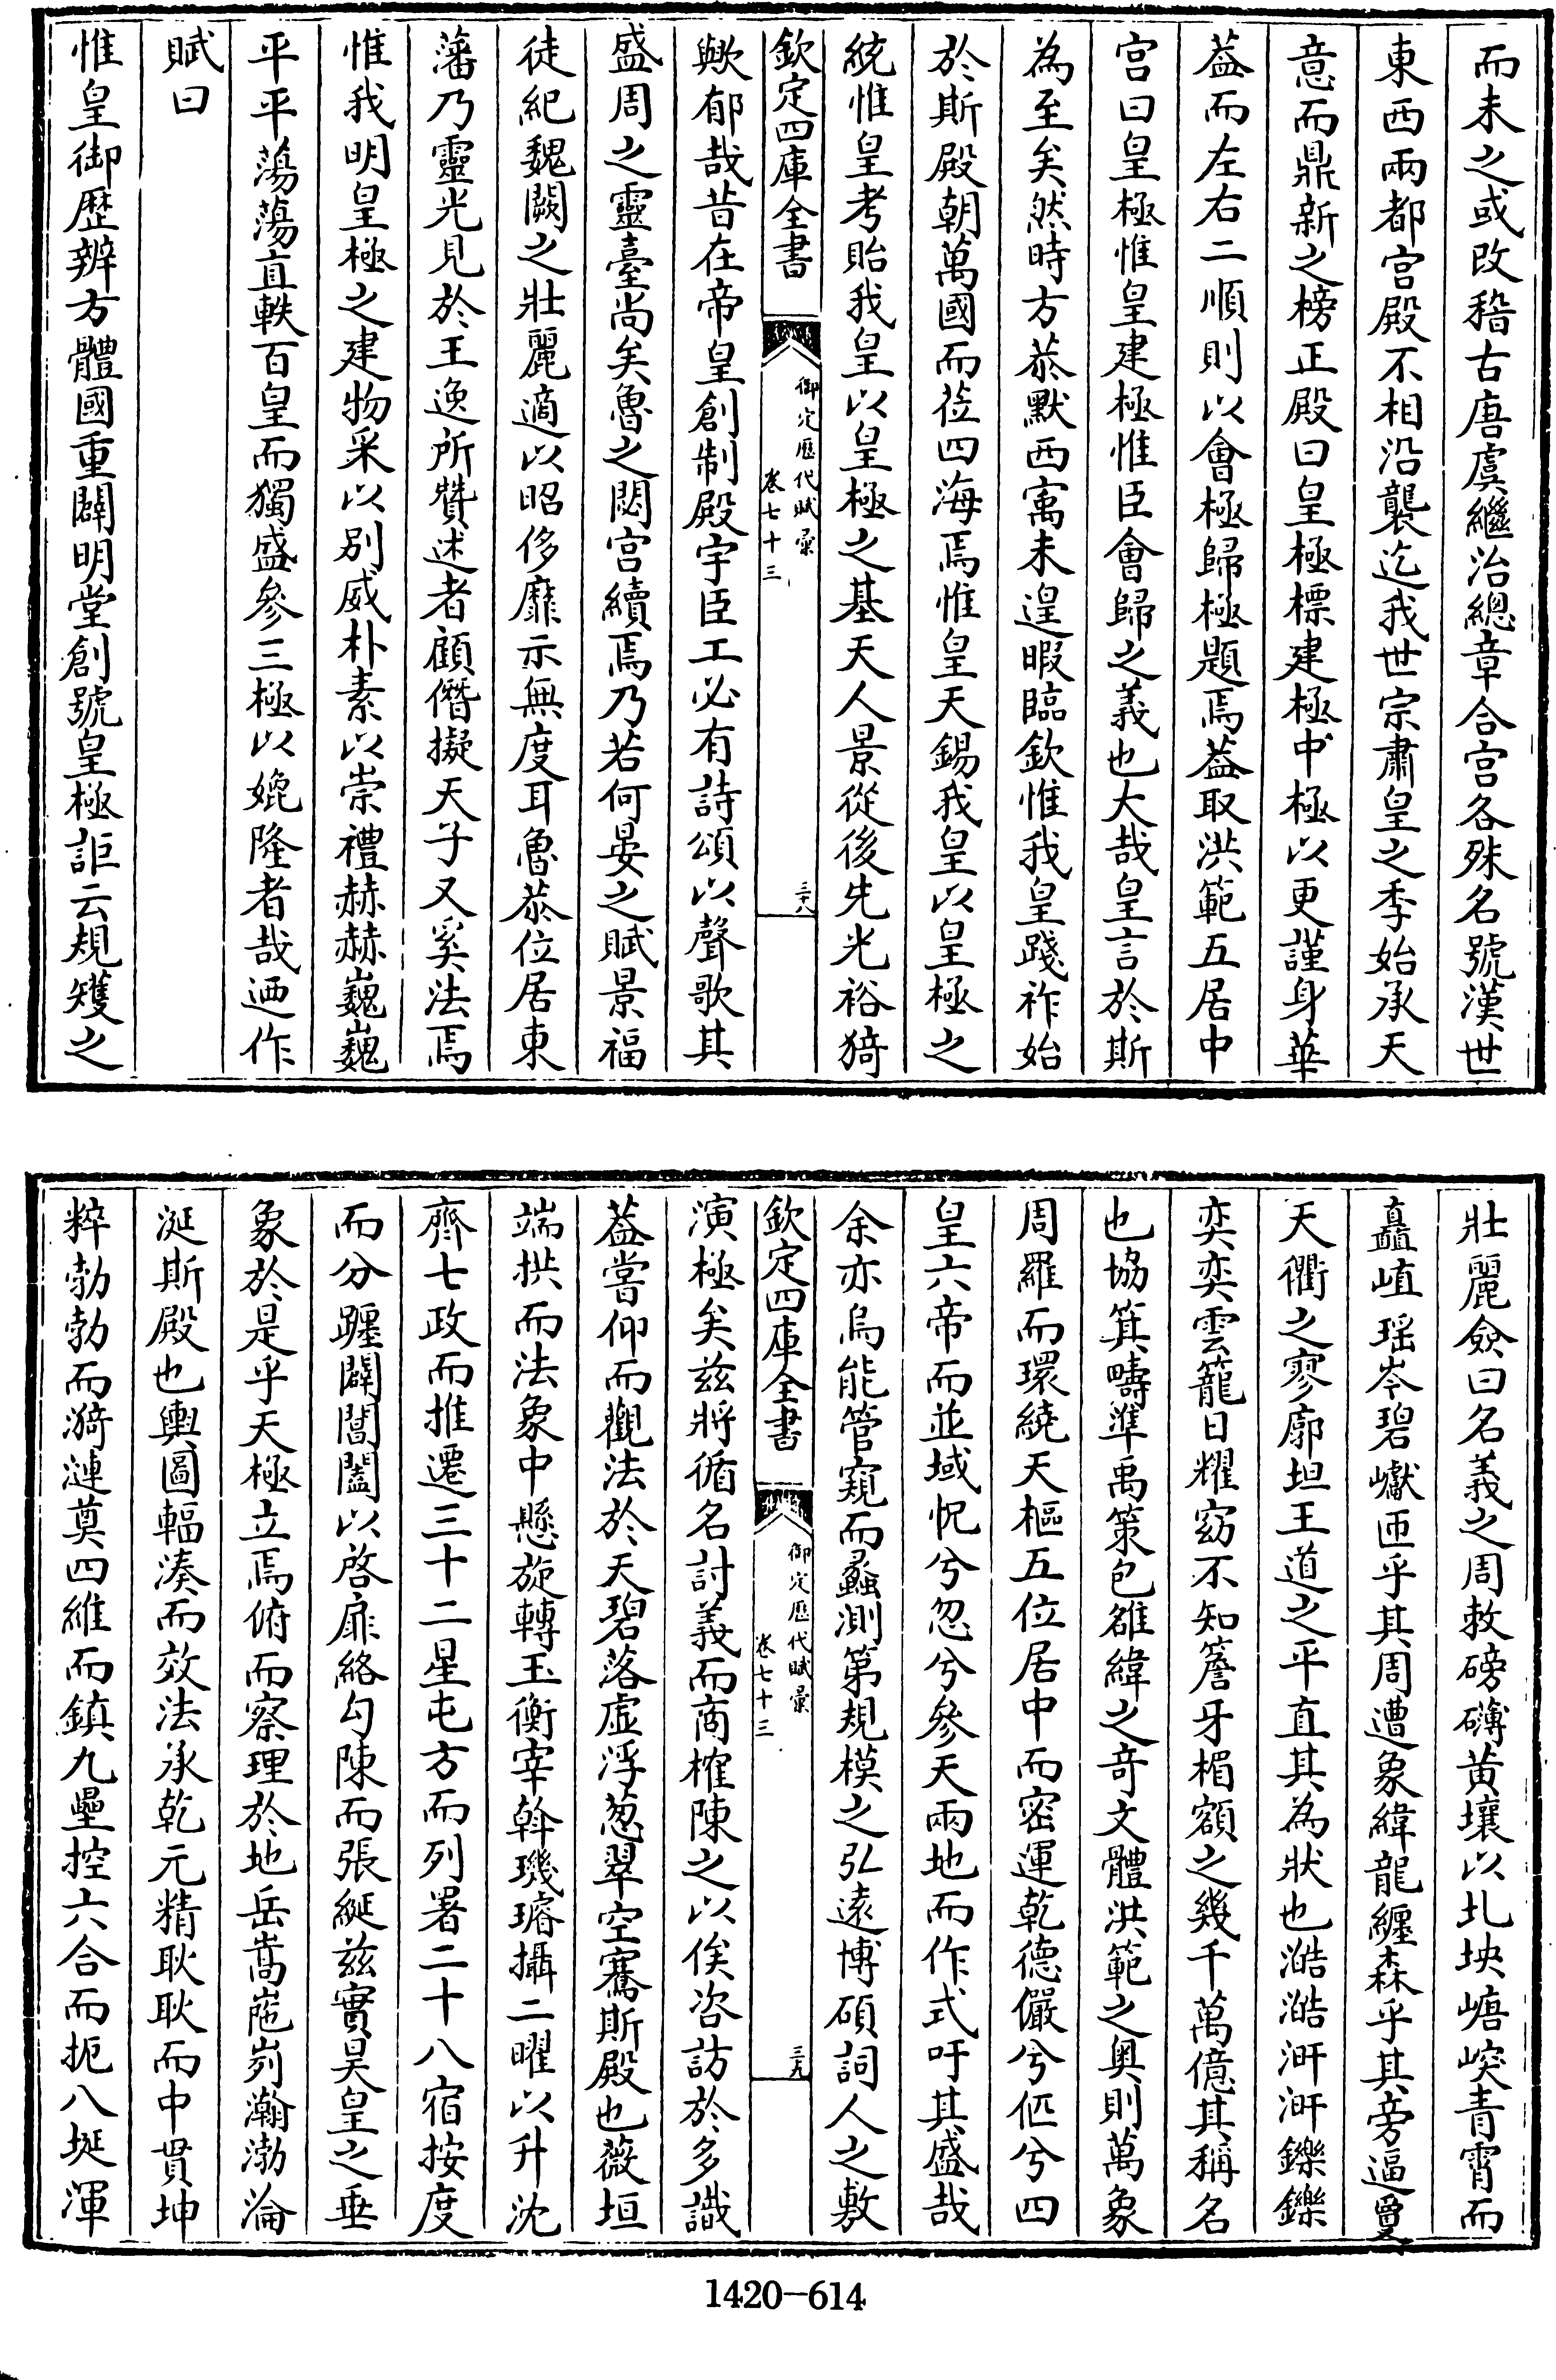 而未之或改稽古唐虞繼治總章合宫各殊名號漢世
東西兩都宫殿不相沿襲迄我世宗肅皇之季始承天
意而鼎新之榜正殿曰皇極標建極中極以更謹身華
葢而左右二順則以會極歸極題焉葢取洪範五居中
宫曰皇極惟皇建極惟臣會歸之義也大哉皇言於斯
為至矣然時方恭默西㝢未遑暇臨欽惟我皇踐祚始
於斯殿朝萬國而莅四海焉惟皇天錫我皇以皇極之
統惟皇考貽我皇以皇極之基天人景從後先光裕猗
欽定四庫全書
御定歷代賦彙
卷七十三
三十八
歟郁哉昔在帝皇創制殿宇臣工必有詩頌以聲歌其
盛周之靈臺尚矣魯之閟宫續焉乃若何晏之賦景福
徒紀魏闕之壯麗適以昭侈靡示無度耳魯恭位居東
藩乃靈光見於王逸所贊述者顧僭擬天子又奚法焉
惟我明皇極之建物采以别威朴素以崇禮赫赫巍巍
平平蕩蕩直軼百皇而獨盛參三極以媲隆者哉迺作
賦曰
惟皇御歴辨方體國重闢明堂創號皇極詎云規矱之
壯麗僉曰名義之周敕磅礴黄壤以圠坱嵣㟐青霄而
矗㟁瑶岑碧巘匝乎其周遭象緯龍纏森乎其旁逼敻
天衢之寥廓坦王道之平直其為狀也澔澔涆涆鑠鑠
奕奕雲籠日耀窈不知簷牙楣額之幾千萬億其稱名
也協箕疇準禹策包雒緯之奇文體洪範之奥則萬象
周羅而環繞天樞五位居中而密運乾德儼兮侐兮四
皇六帝而並域怳兮忽兮參天兩地而作式吁其盛哉
余亦烏能管窺而蠡測第規模之弘遠博碩詞人之敷
欽定四庫全書
御定歷代賦彙
卷七十三
三十九
演極矣兹將循名討義而商榷陳之以俟咨訪於多識
葢嘗仰而觀法於天碧落虚浮葱翠空騫斯殿也薇垣
端拱而法象中懸旋轉玉衡宰斡璣璿攝二曜以升沈
齊七政而推遷三十二星屯方而列署二十八宿按度
而分躔闢閶闔以啓扉絡勾陳而張綖兹實昊皇之垂
象於是乎天極立焉俯而察理於地岳嵩崺峛瀚渤淪
涎斯殿也輿圖輻湊而效法承乾元精耿耿而中貫坤
粹勃勃而漪漣奠四維而鎮九壘控六合而扼八埏渾
1420-614